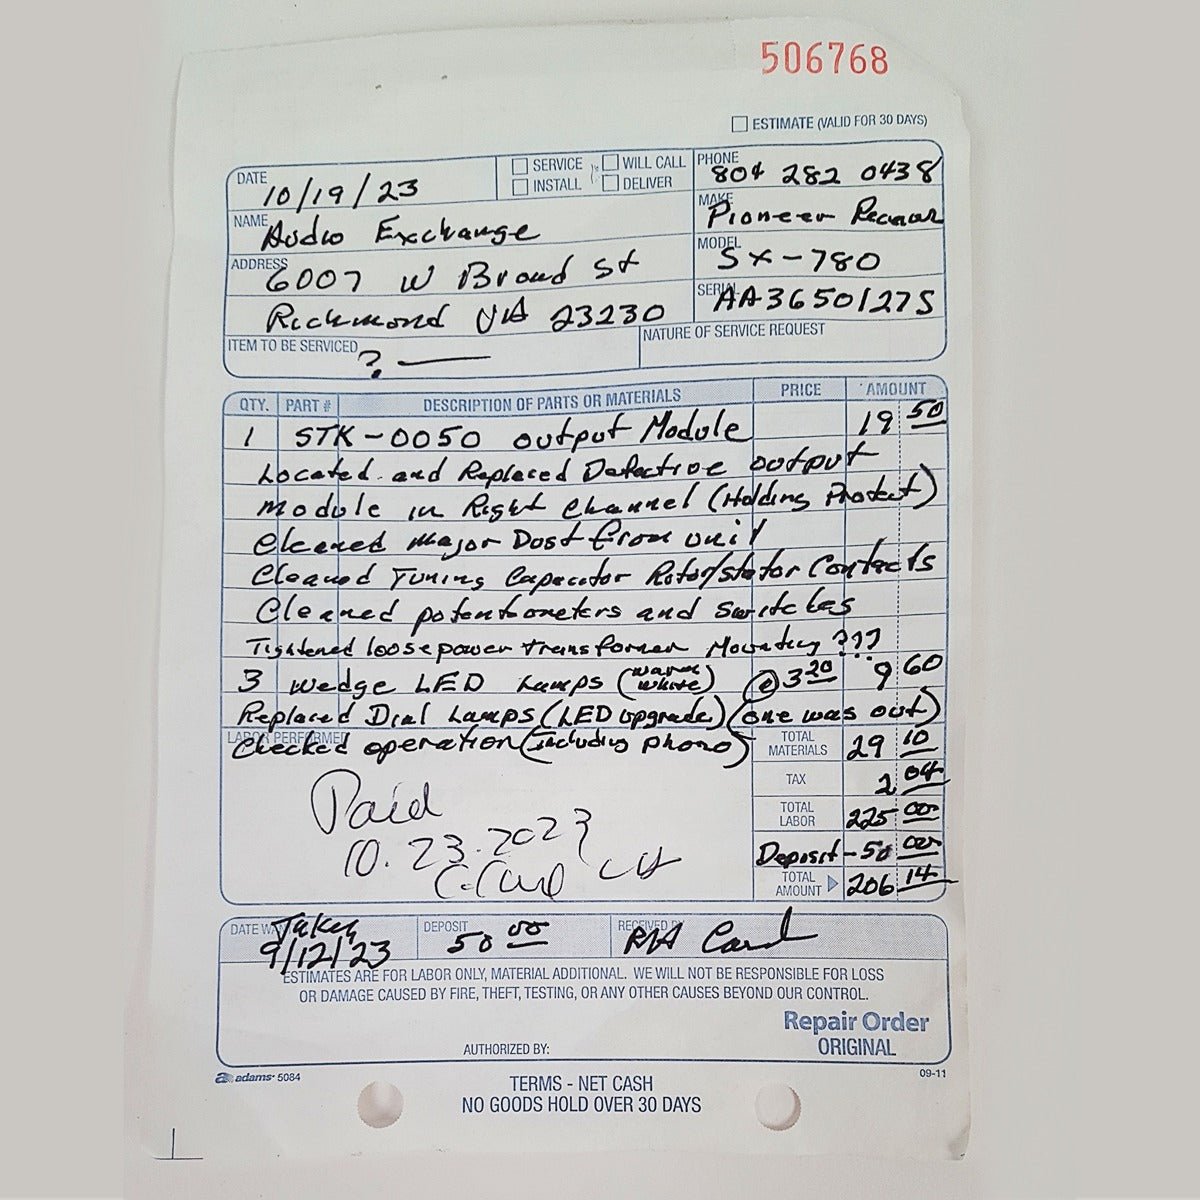 506768
ESTIMATE (VALID FOR 30 DAYS)
DATE 10/19/23 SERVICE WILL CALL PHONE 804 282 0438
INSTALL DELIVER
NAME Audio Exchange MAKE Pioneer
ADDRESS 6007 W Broad St MODEL SX-780
Richmond VA 23230 SERIAL AA3650127S
ITEM TO BE SERVICED ? — NATURE OF SERVICE REQUEST
QTY. PART # DESCRIPTION OF PARTS OR MATERIALS PRICE AMOUNT
1 STK-0050 output Module 19 50
Located and Replaced Defective output
module in Right Channel (Holding Protect)
Cleaned major Dust from unit
Cleaned Tuning Capacitor Rotor/stator Contacts
Cleaned potentiometers and switches
Tightened loose power transformer Mounting ???
3 Wedge LED Lamps (warm white) @ 3 20 9 60
Replaced Dial Lamps (LED upgrade) (one was out)
LABOR PERFORMED
Checked operation (Including phono)
TOTAL MATERIALS 29 10
TAX 2 04
TOTAL LABOR 225 00
Deposit - 50 00
TOTAL AMOUNT 206 14
Paid
10.23.2023
C.Card
DATE Taken 9/12/23 DEPOSIT 50 00 RECEIVED BY Card
ESTIMATES ARE FOR LABOR ONLY, MATERIAL ADDITIONAL. WE WILL NOT BE RESPONSIBLE FOR LOSS
OR DAMAGE CAUSED BY FIRE, THEFT, TESTING, OR ANY OTHER CAUSES BEYOND OUR CONTROL.
Repair Order
ORIGINAL
AUTHORIZED BY:
adams 5084
09-11
TERMS - NET CASH
NO GOODS HOLD OVER 30 DAYS